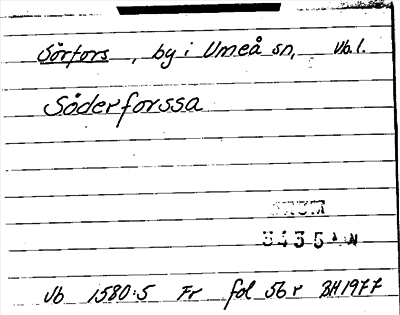 Sörfors, by i Umeå sn, Vb.l.
Söderforssa
5435
Vb 1580:5 Fr fol 56r BH1977